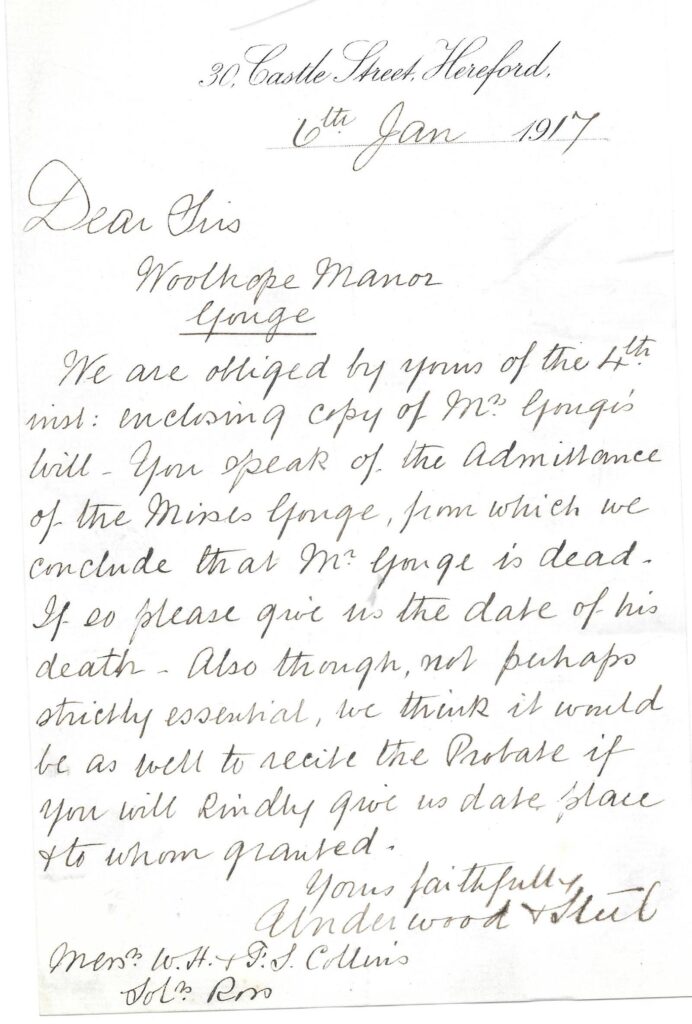 30, Castle Street, Hereford.
6th Jan 1917
Dear Sirs
Woolhope Manor
Gouge
We are obliged by yours of the 4th
inst: enclosing copy of Mrs Gouge's
Will - You speak of the Admittance
of the Misses Gouge, from which we
conclude that Mr Gouge is dead.
If so please give us the date of his
death - Also though, not perhaps
strictly essential, we think it would
be as well to recite the Probate if
you will kindly give us date, place
& to whom granted.
Yours faithfully
Underwood & Steel
Messrs W. H. & F. S. Collins
Solrs Ross